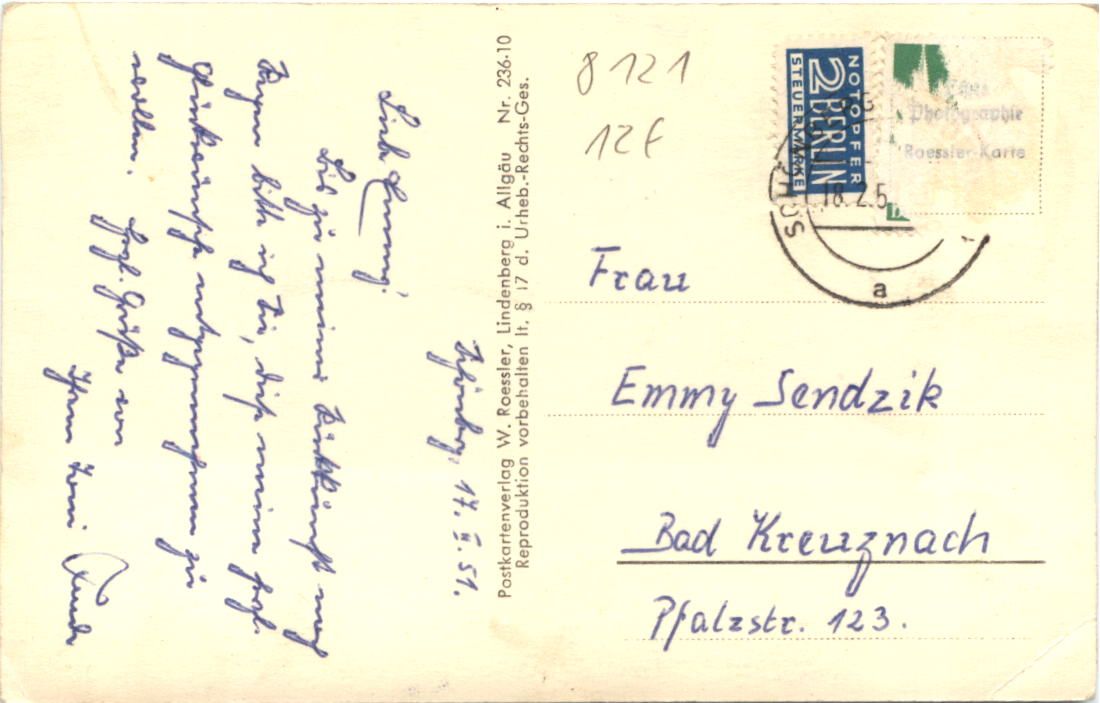 17.II.51.
Liebe Emmy!
Bis zu meiner Rückkunft nach
bitte ich Sie, diese meine herzl.
Glückwünsche entgegennehmen zu
wollen. Herzl. Grüße von
Ihrem
Postkartenverlag W. Roessler, Lindenberg i. Allgäu Nr. 236-10
Reproduktion vorbehalten lt. § 17 d. Urheb.-Rechts-Ges.
8121
12F
NOTOPFER
2 BERLIN
STEUERMARKE
Photographie
Roessler-Karte
18.2.5
a
Frau
Emmy Sendzik
Bad Kreuznach
Pfalzstr. 123.